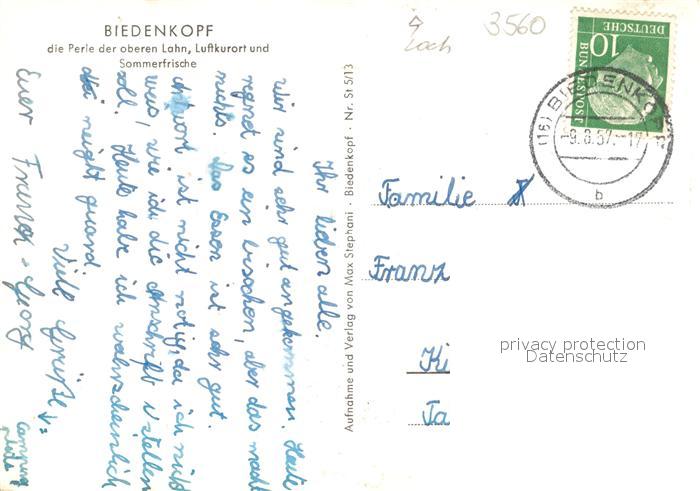 BIEDENKOPF
die Perle der oberen Lahn, Luftkurort und
Sommerfrische
Ihr lieben alle.
Wir sind sehr gut angekommen. Heute
regnet es ein bisschen, aber das macht
nichts. Das Essen ist sehr gut.
Antwort ist nicht nötig, da ich nicht
weis, wie ich die Anschrift
soll. Heute habe ich wahrscheinlich
Viele Grüße
Euer Franz
Aufnahme und Verlag von Max Stephani · Biedenkopf · Nr. St 5/13
3560
DEUTSCHE
BUNDESPOST
10
(16) BIEDENKOPF
-9.8.57.-17
b
Familie
Franz
Ki
Ta
privacy protection
Datenschutz